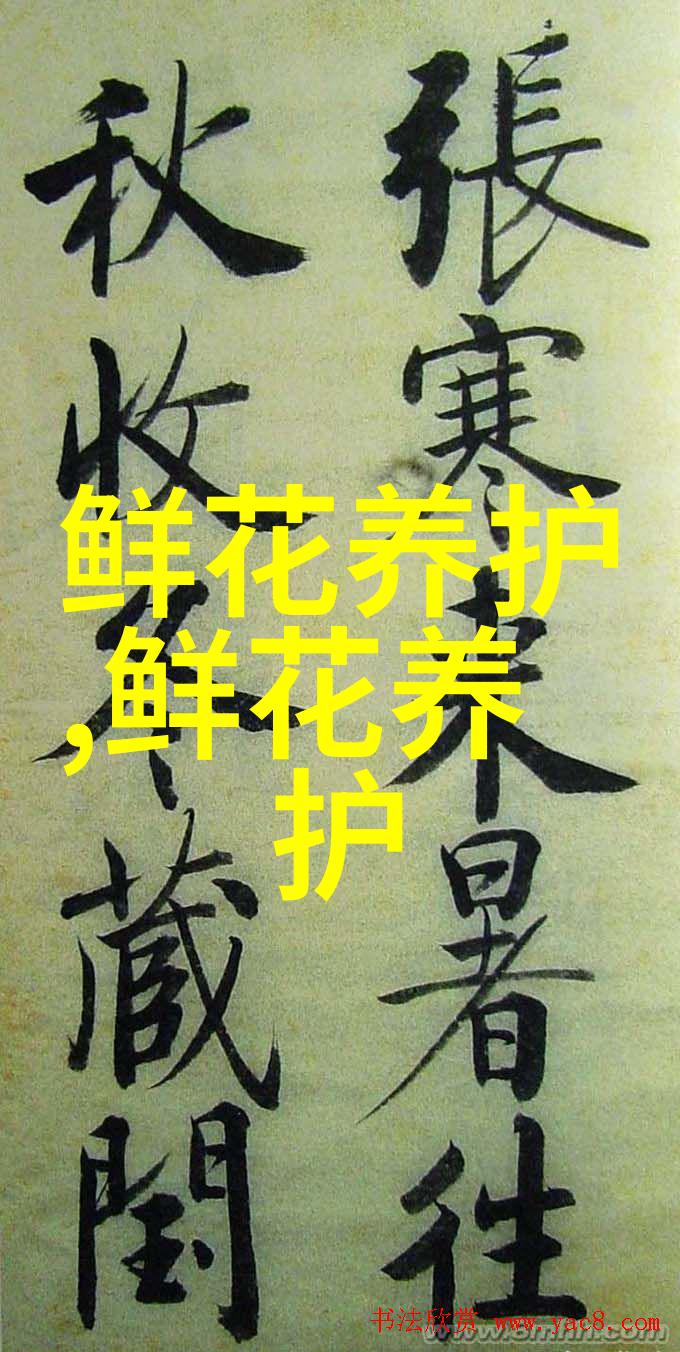 張寒来暑往
秋收冬藏閏
鲜花养护
,鲜花养
护
书法欣赏 www.yac8.com